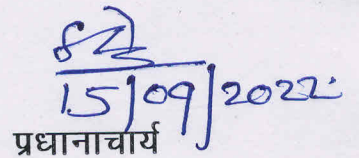 15/09/2022
प्रधानाचार्य